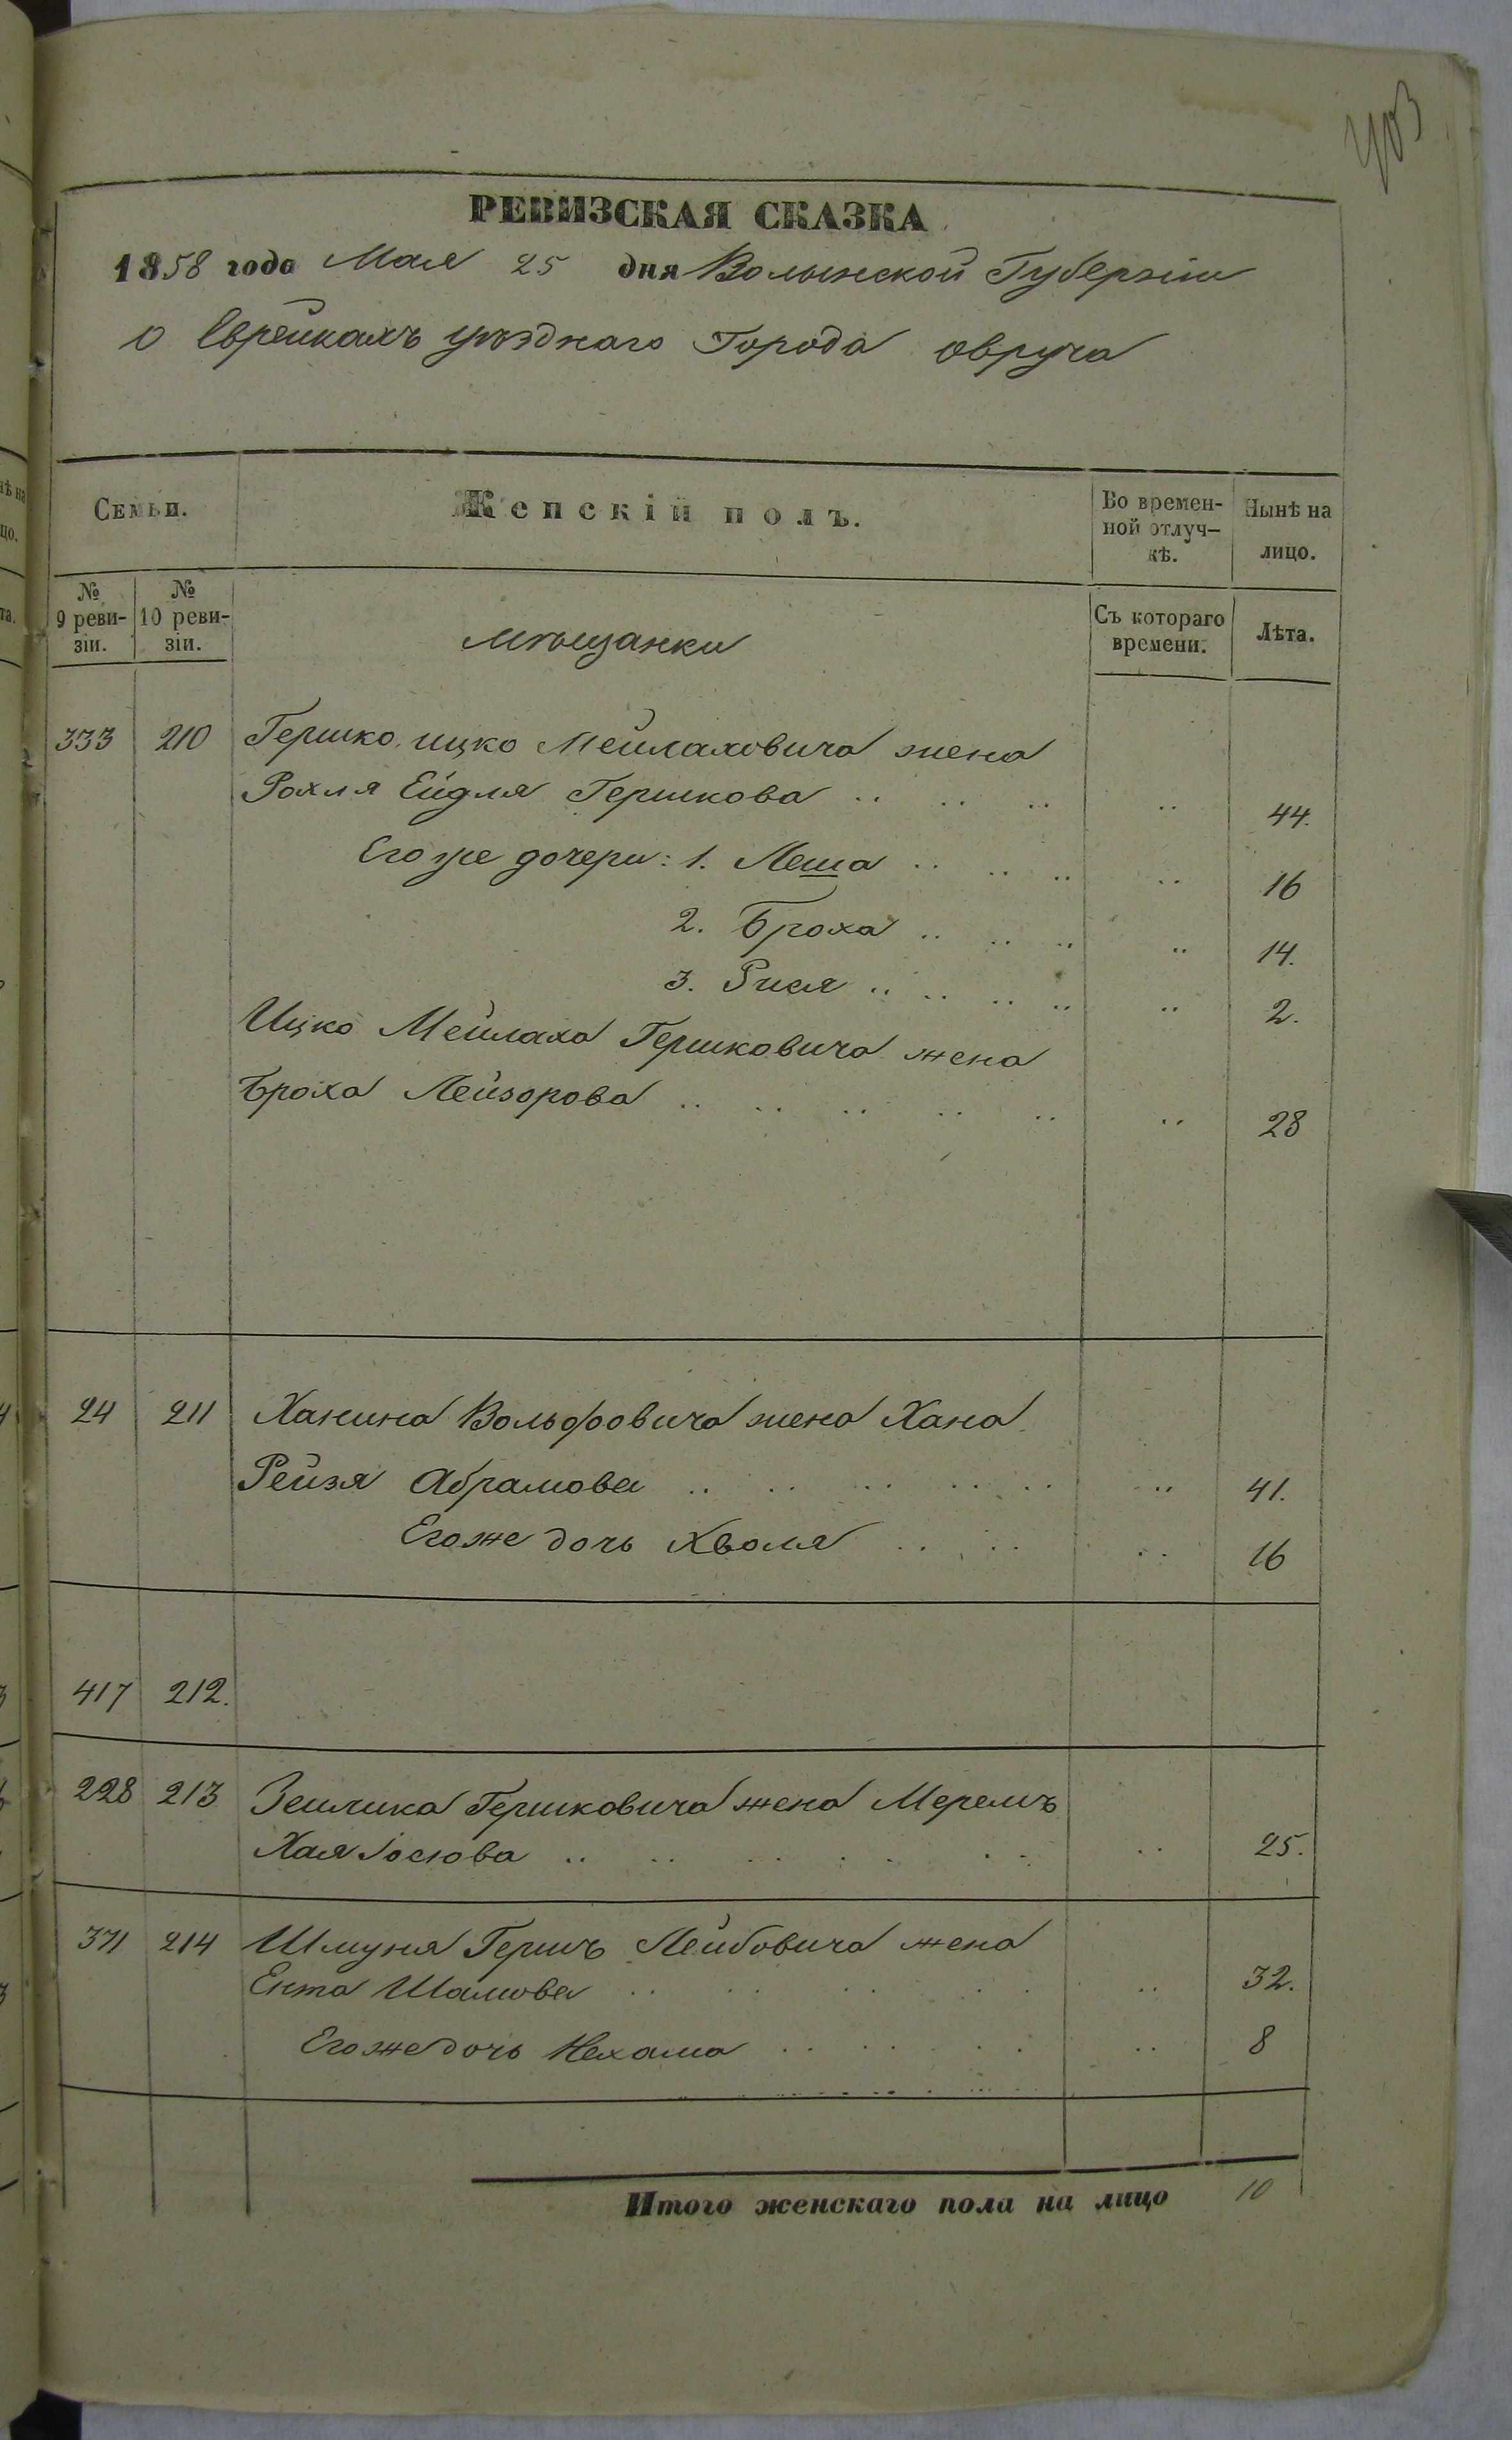 403
РЕВИЗСКАЯ СКАЗКА
1858 года Мая 25 дня Волынской Губерніи
о Еврейкахъ уѣзднаго Города Овруча
Семьи.
Женскій полъ.
Во времен-
ной отлуч-
кѣ.
Нынѣ на
лицо.
№
9 реви-
зіи.
№
10 реви-
зіи.
мѣщанки
Съ котораго
времени.
Лѣта.
333 210 Гершко Ицко Мейлаховича жена
Рохля Ейдля Гершкова 44.
Его же дочери: 1. Леша 16
2. Броха 14.
3. Рися 2.
Ицко Мейлаха Гершковича жена
Броха Лейзорова 28
24 211 Ханина Вольфовича жена Хана
Рейзя Абрамова 41.
Егоже дочь Хволя 16
417 212.
228 213 Зейлика Гершковича жена Меремъ
Хая Іосіова 25.
371 214 Шмуня Гершъ Лейбовича жена
Ента Шамова 32.
Егоже дочь Нехама 8
Итого женскаго пола на лицо 10